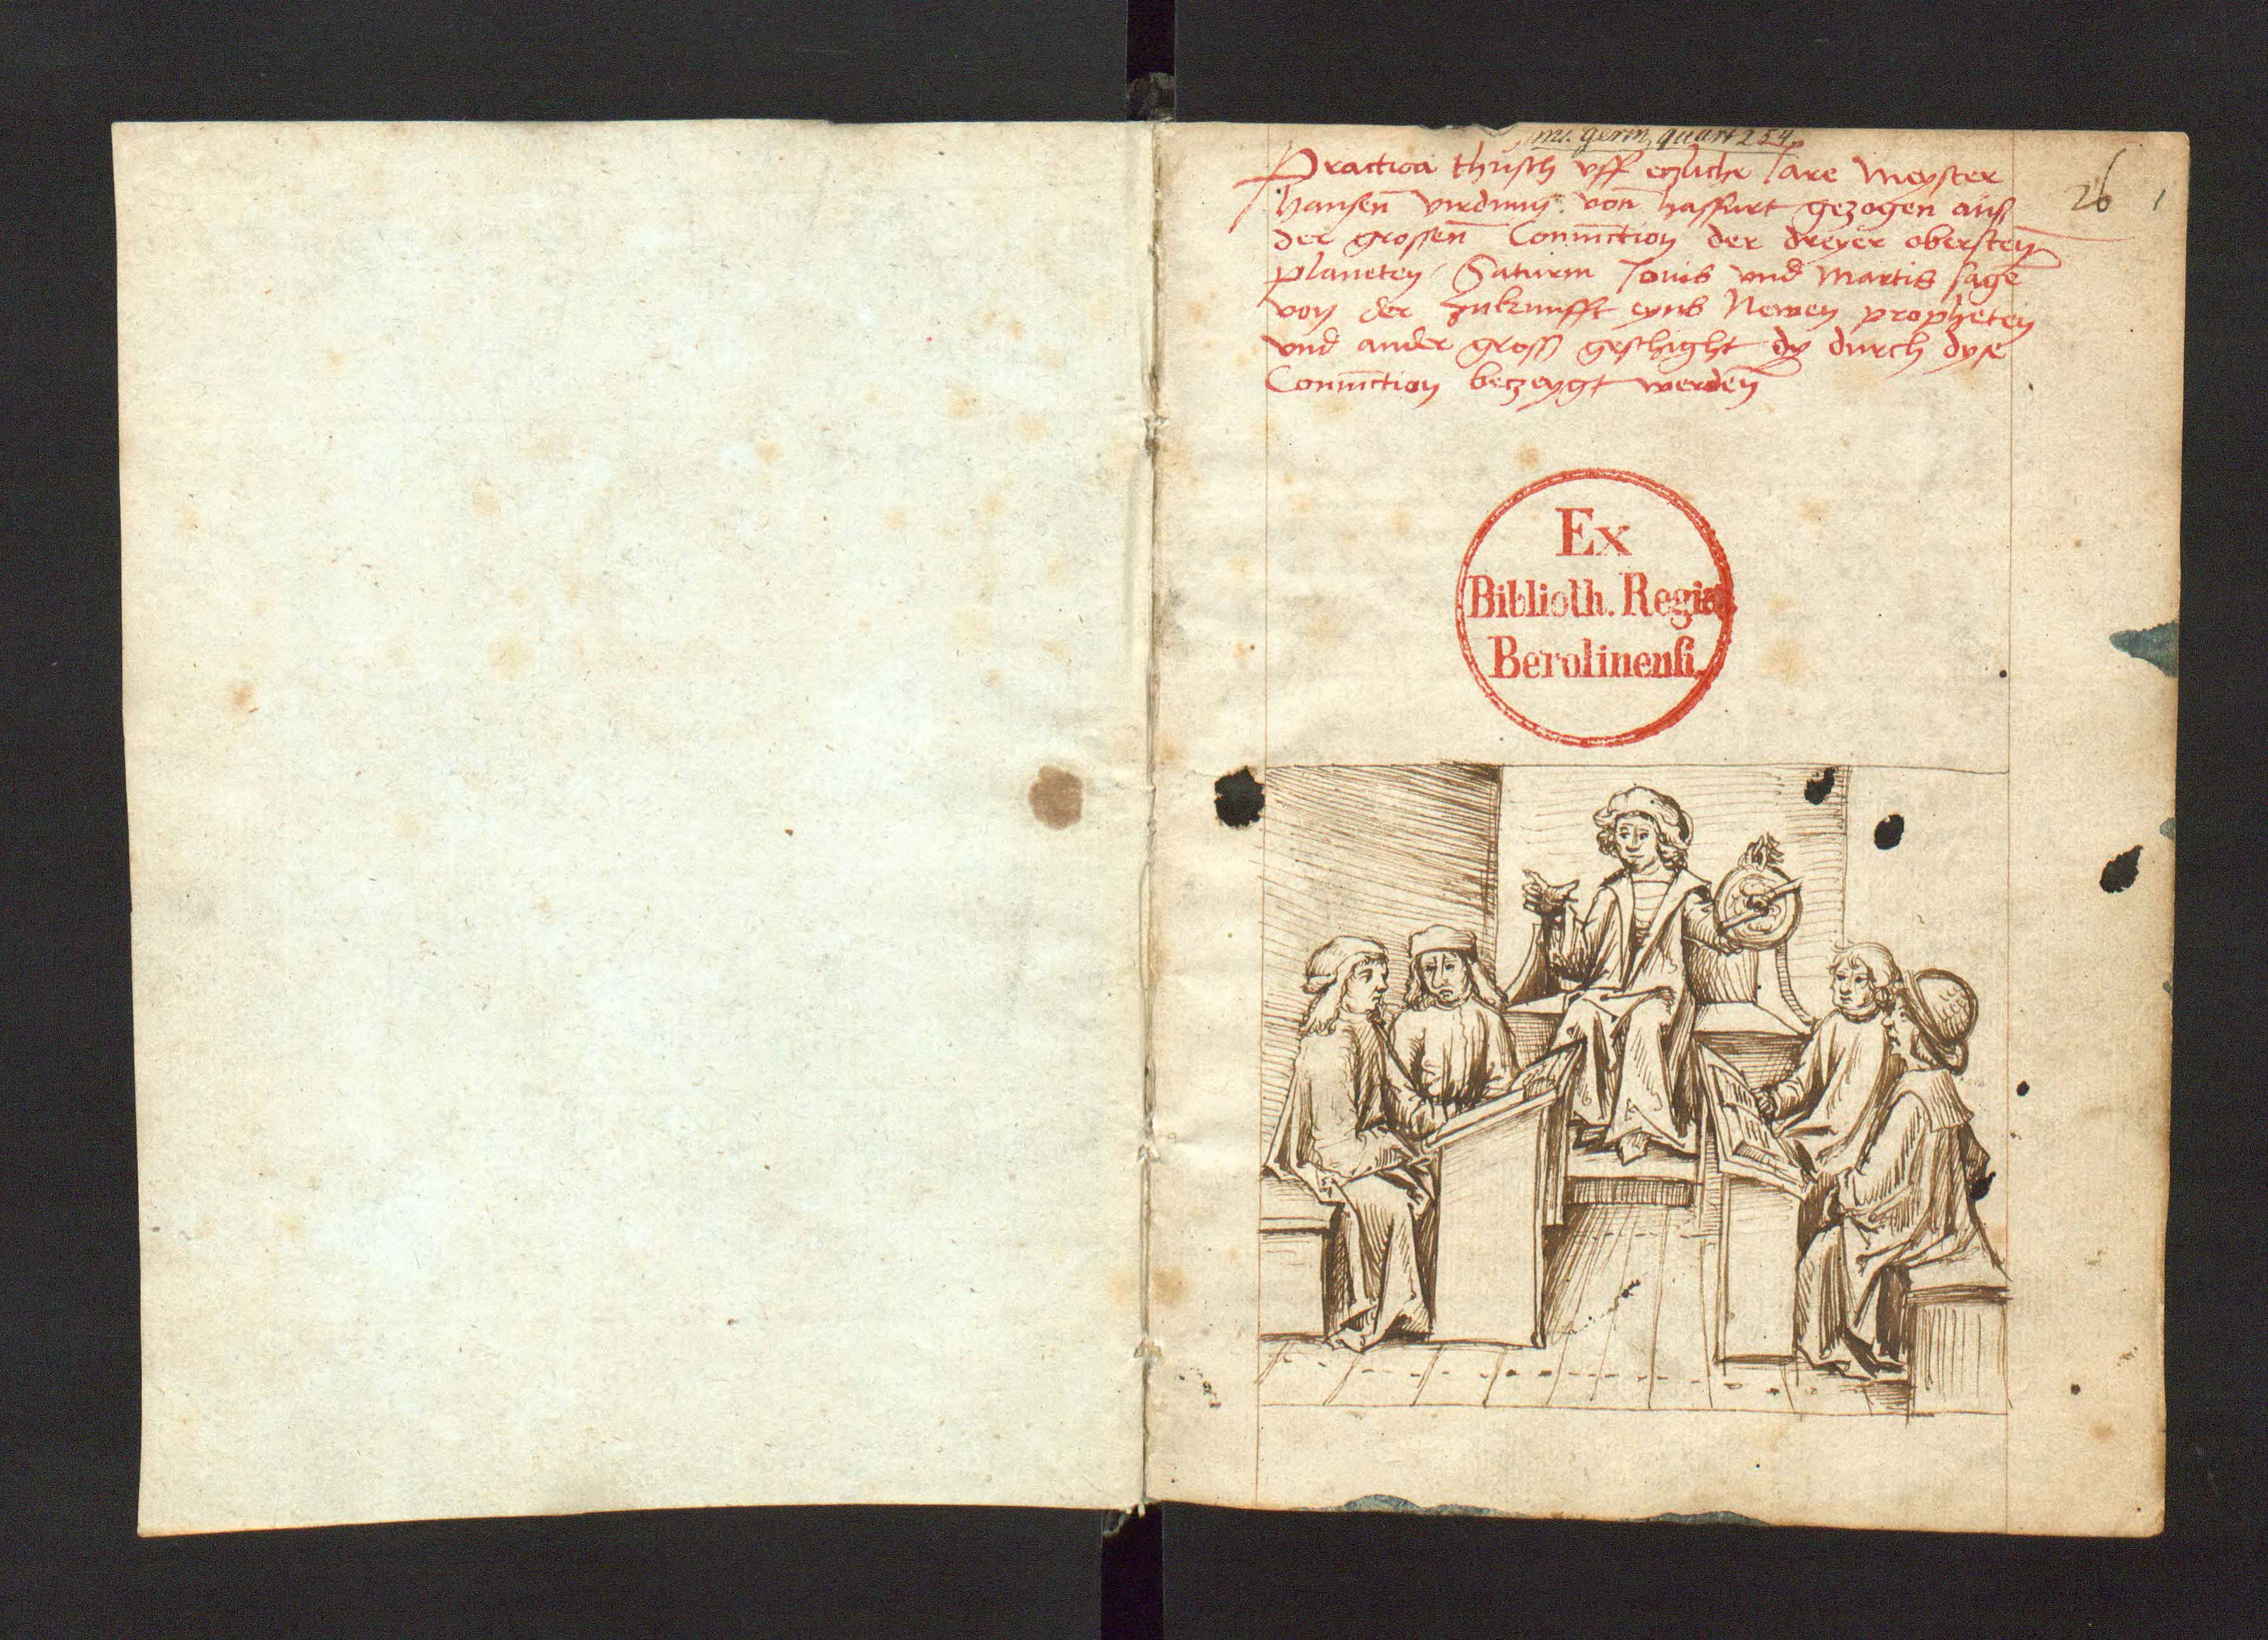 ms. germ. quart 254.
26 1
Practica thusch vff etzliche Jare Meyster
hansen virdung von haffurt gezogen auß
der grossen Coniūction der dreyer obersten
planeten Saturni Jouis vnd Martis sagē
von der zukunfft eyns Newen propheten
vnd ander gross geschight dy durch dyse
Coniūction betzeygt werden
Ex
Biblioth. Regia
Berolinenſi.